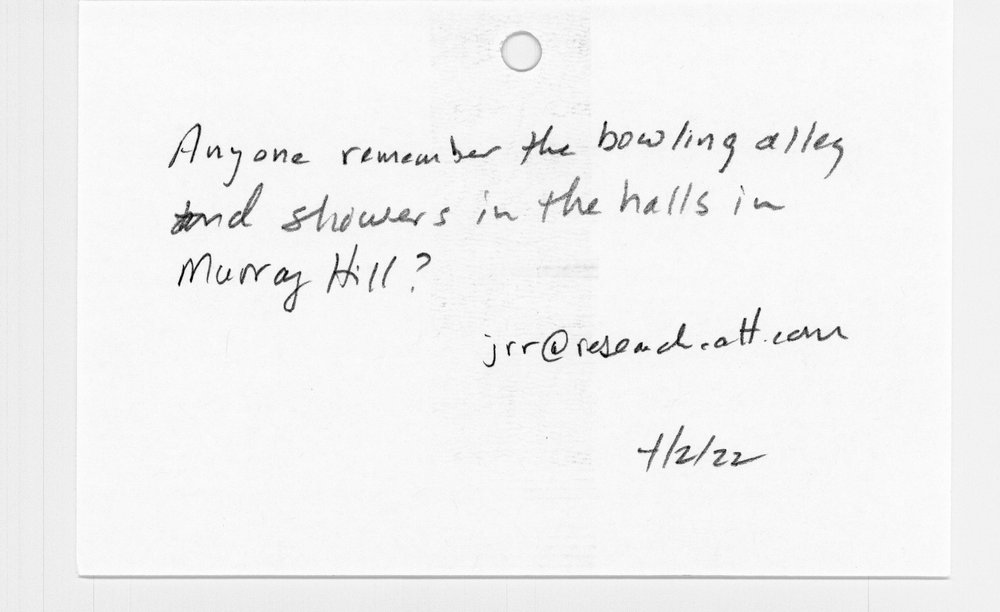 Anyone remember the bowling alley
and showers in the halls in
Murray Hill?
jrr@research.att.com
4/2/22